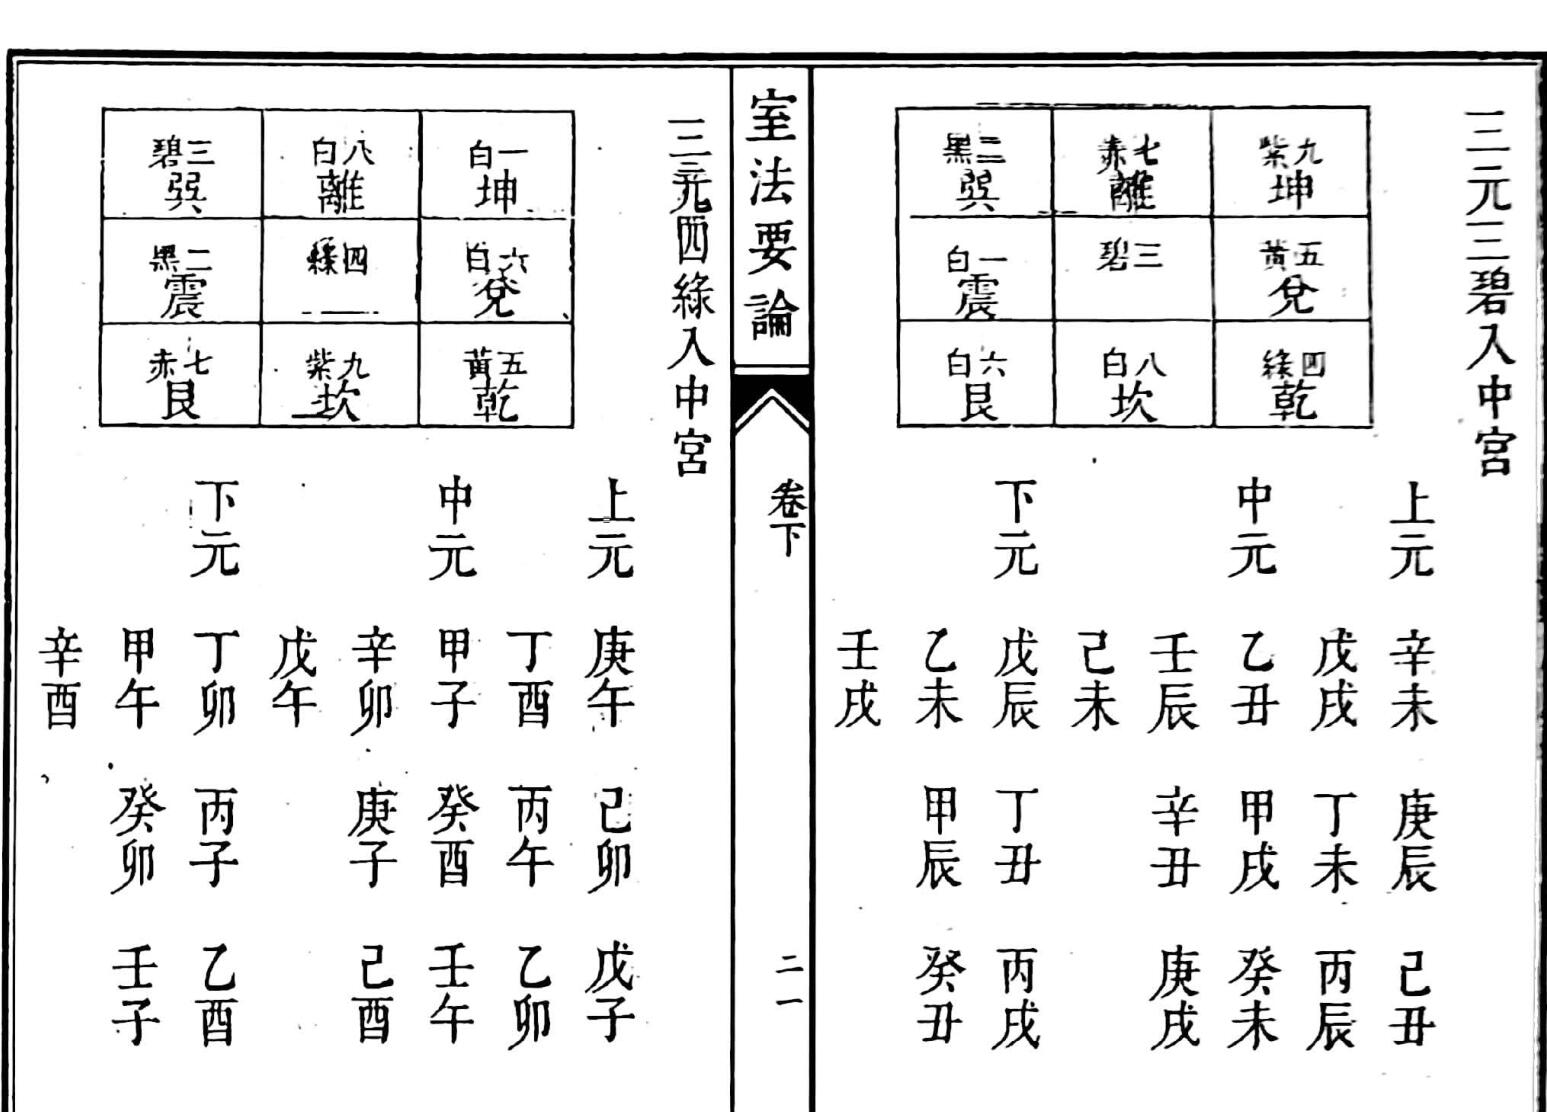 三元三碧入中宮
九紫坤
七赤離
二黑巽
五黃兌
三碧
一白震
四綠乾
八白坎
六白艮
上元 辛未 庚辰 己丑
戊戌 丁未 丙辰
中元 乙丑 甲戌 癸未
壬辰 辛丑 庚戌
己未
下元 戊辰 丁丑 丙戌
乙未 甲辰 癸丑
壬戌
室法要論
卷下
二一
三元四綠入中宮
一白坤
八白離
三碧巽
六白兌
四綠
二黑震
五黃乾
九紫坎
七赤艮
上元 庚午 己卯 戊子
丁酉 丙午 乙卯
中元 甲子 癸酉 壬午
辛卯 庚子 己酉
戊午
下元 丁卯 丙子 乙酉
甲午 癸卯 壬子
辛酉